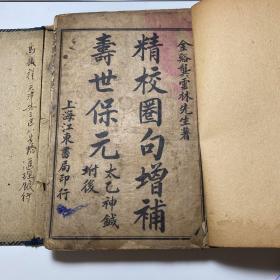 金谿龔雲林先生著
精校圈句增補
壽世保元
太乙神鍼
坿後
上海江東書局印行